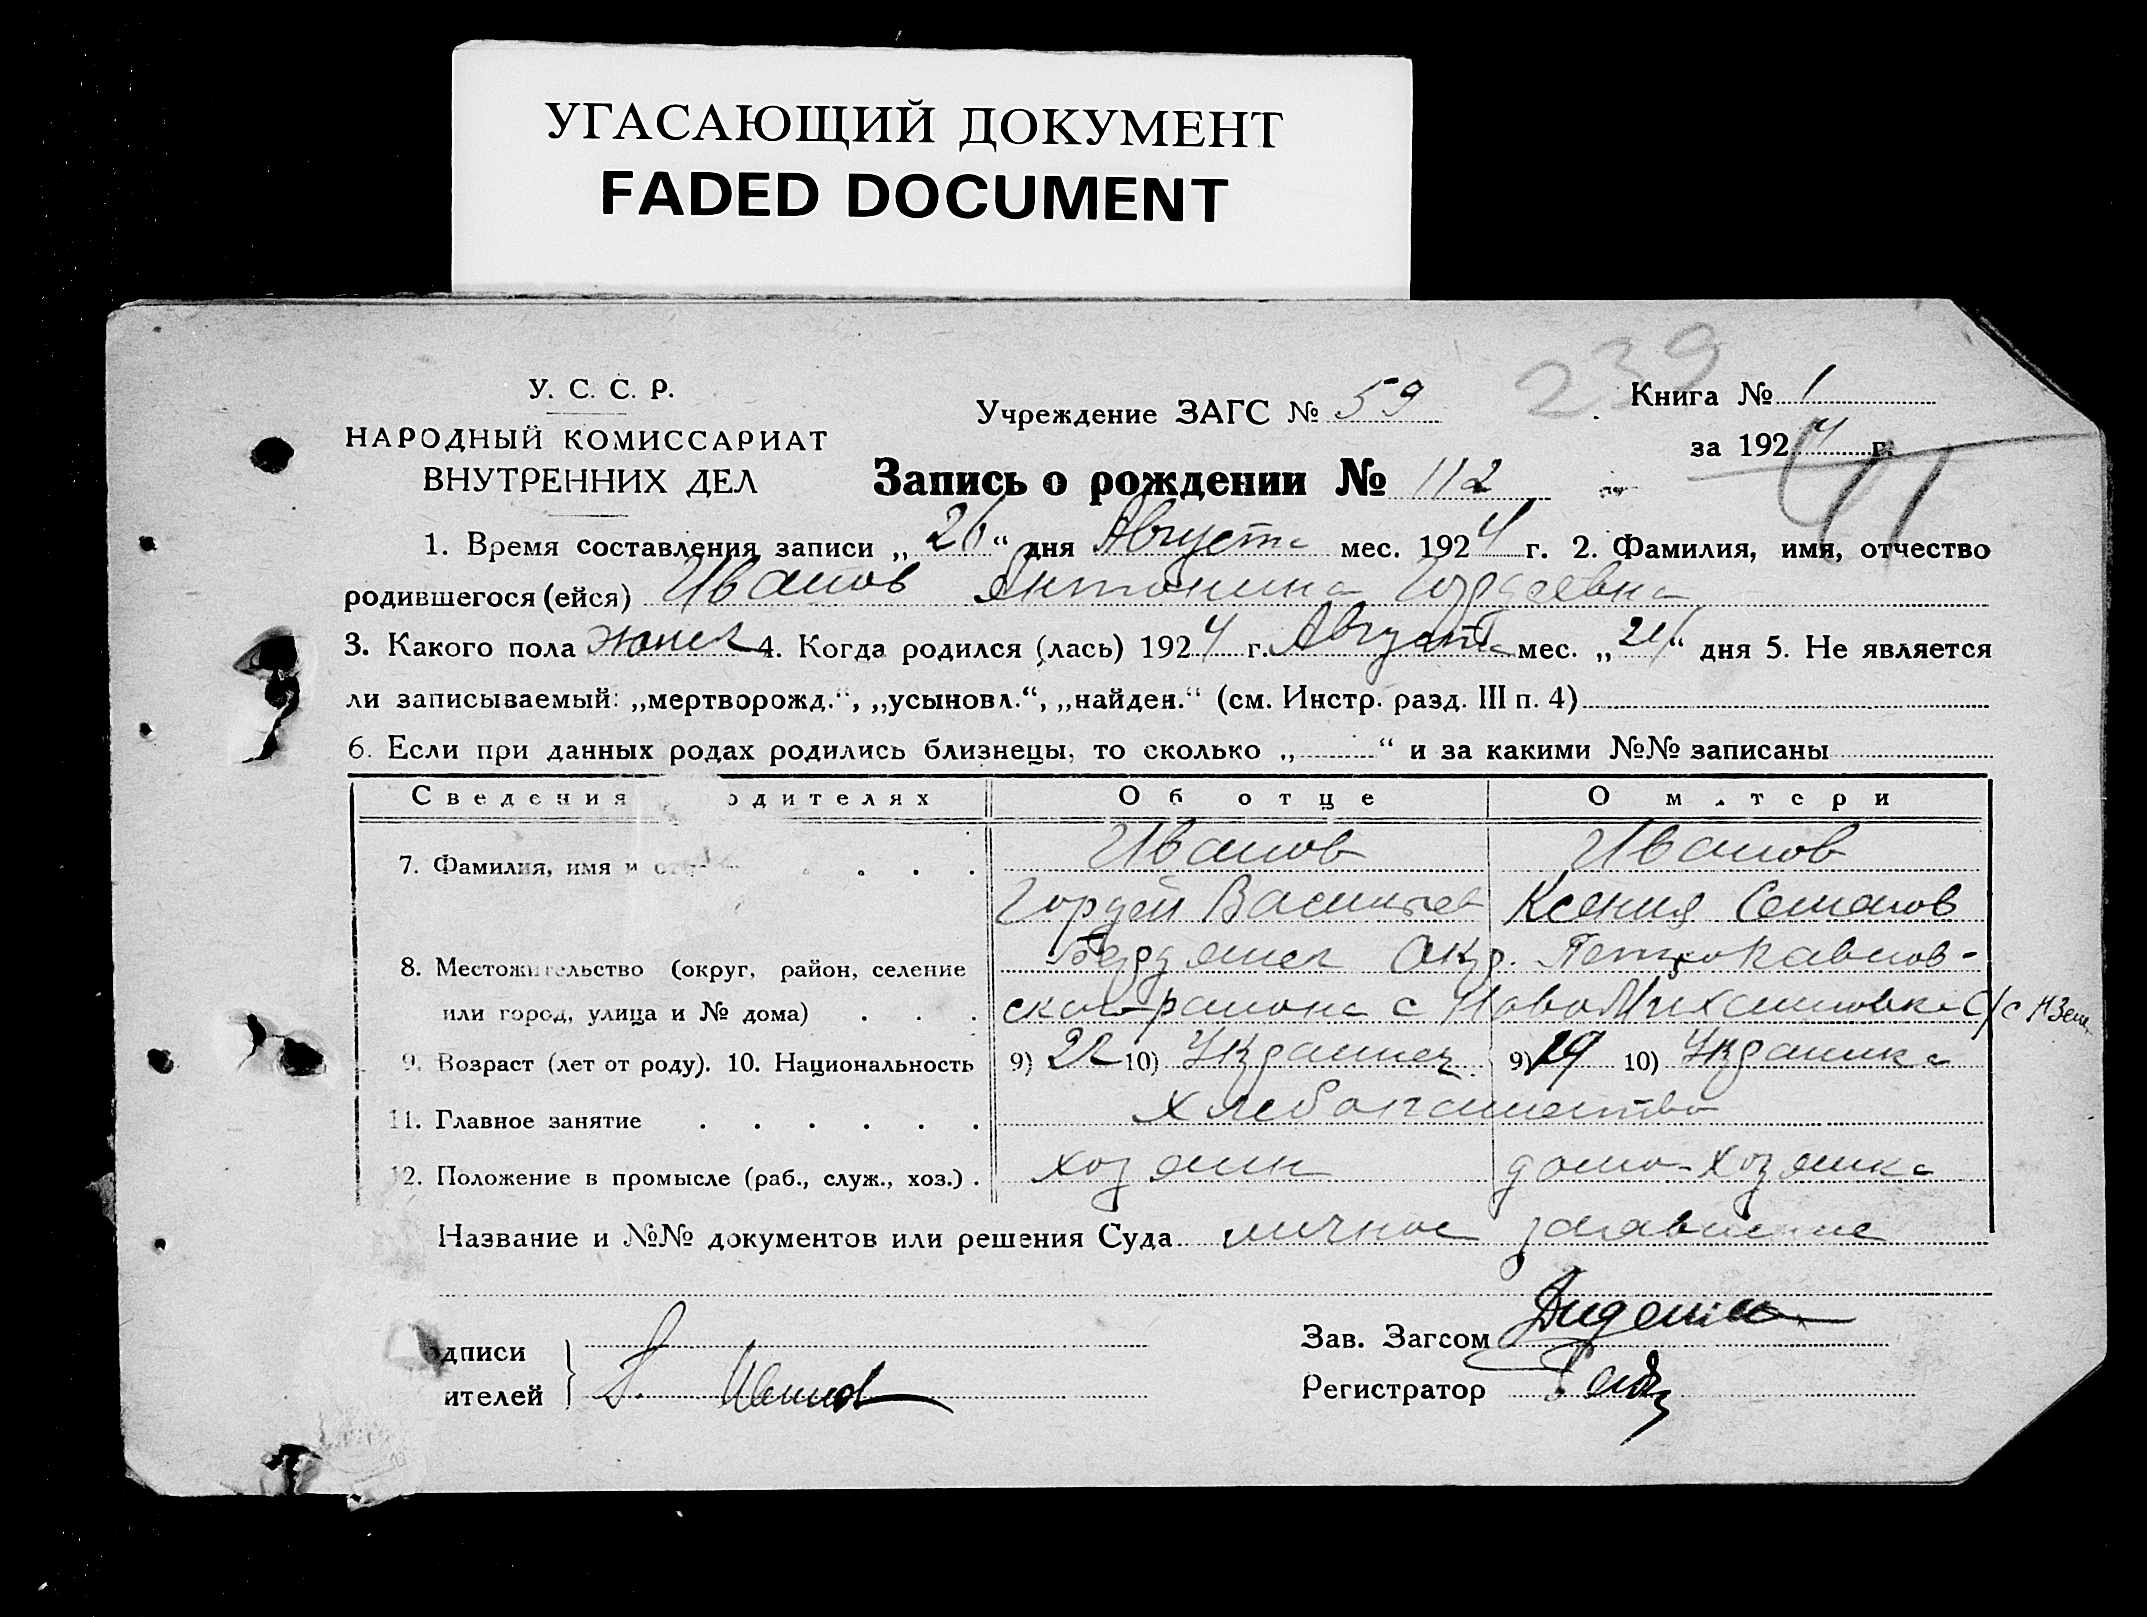 УГАСАЮЩИЙ ДОКУМЕНТ
FADED DOCUMENT
239
У. С. С. Р.
НАРОДНЫЙ КОМИССАРИАТ
ВНУТРЕННИХ ДЕЛ
Учреждение ЗАГС № 59
Книга № 1
за 1924 г.
Запись о рождении № 112
1. Время составления записи „26“ дня Августа мес. 1924 г. 2. Фамилия, имя, отчество
родившегося (ейся) Иванов Антонина Гордеевна
3. Какого пола женск 4. Когда родился (лась) 1924 г. Августа мес. „24“ дня 5. Не является
ли записываемый: „мертворожд.“, „усыновл.“, „найден.“ (см. Инстр. разд. III п. 4)
6. Если при данных родах родились близнецы, то сколько „ “ и за какими №№ записаны
Сведения одителях Об отце О м тери
7. Фамилия, имя и Иванов Иванов
Гордей Васильев Ксения Семенов
8. Местожительство (округ, район, селение Бердянск Окр. Петропавлов-
или город, улица и № дома) ског района с НовоМихайловка С/с
9. Возраст (лет от роду). 10. Национальность 9) 22 10) Украинец 9) 19 10) Украинка
11. Главное занятие Хлебопашество
12. Положение в промысле (раб., служ., хоз.) хозяин домо-хозяйка
Название и №№ документов или решения Суда личное заявление
дписи
ителей Иванов
Зав. Загсом
Регистратор